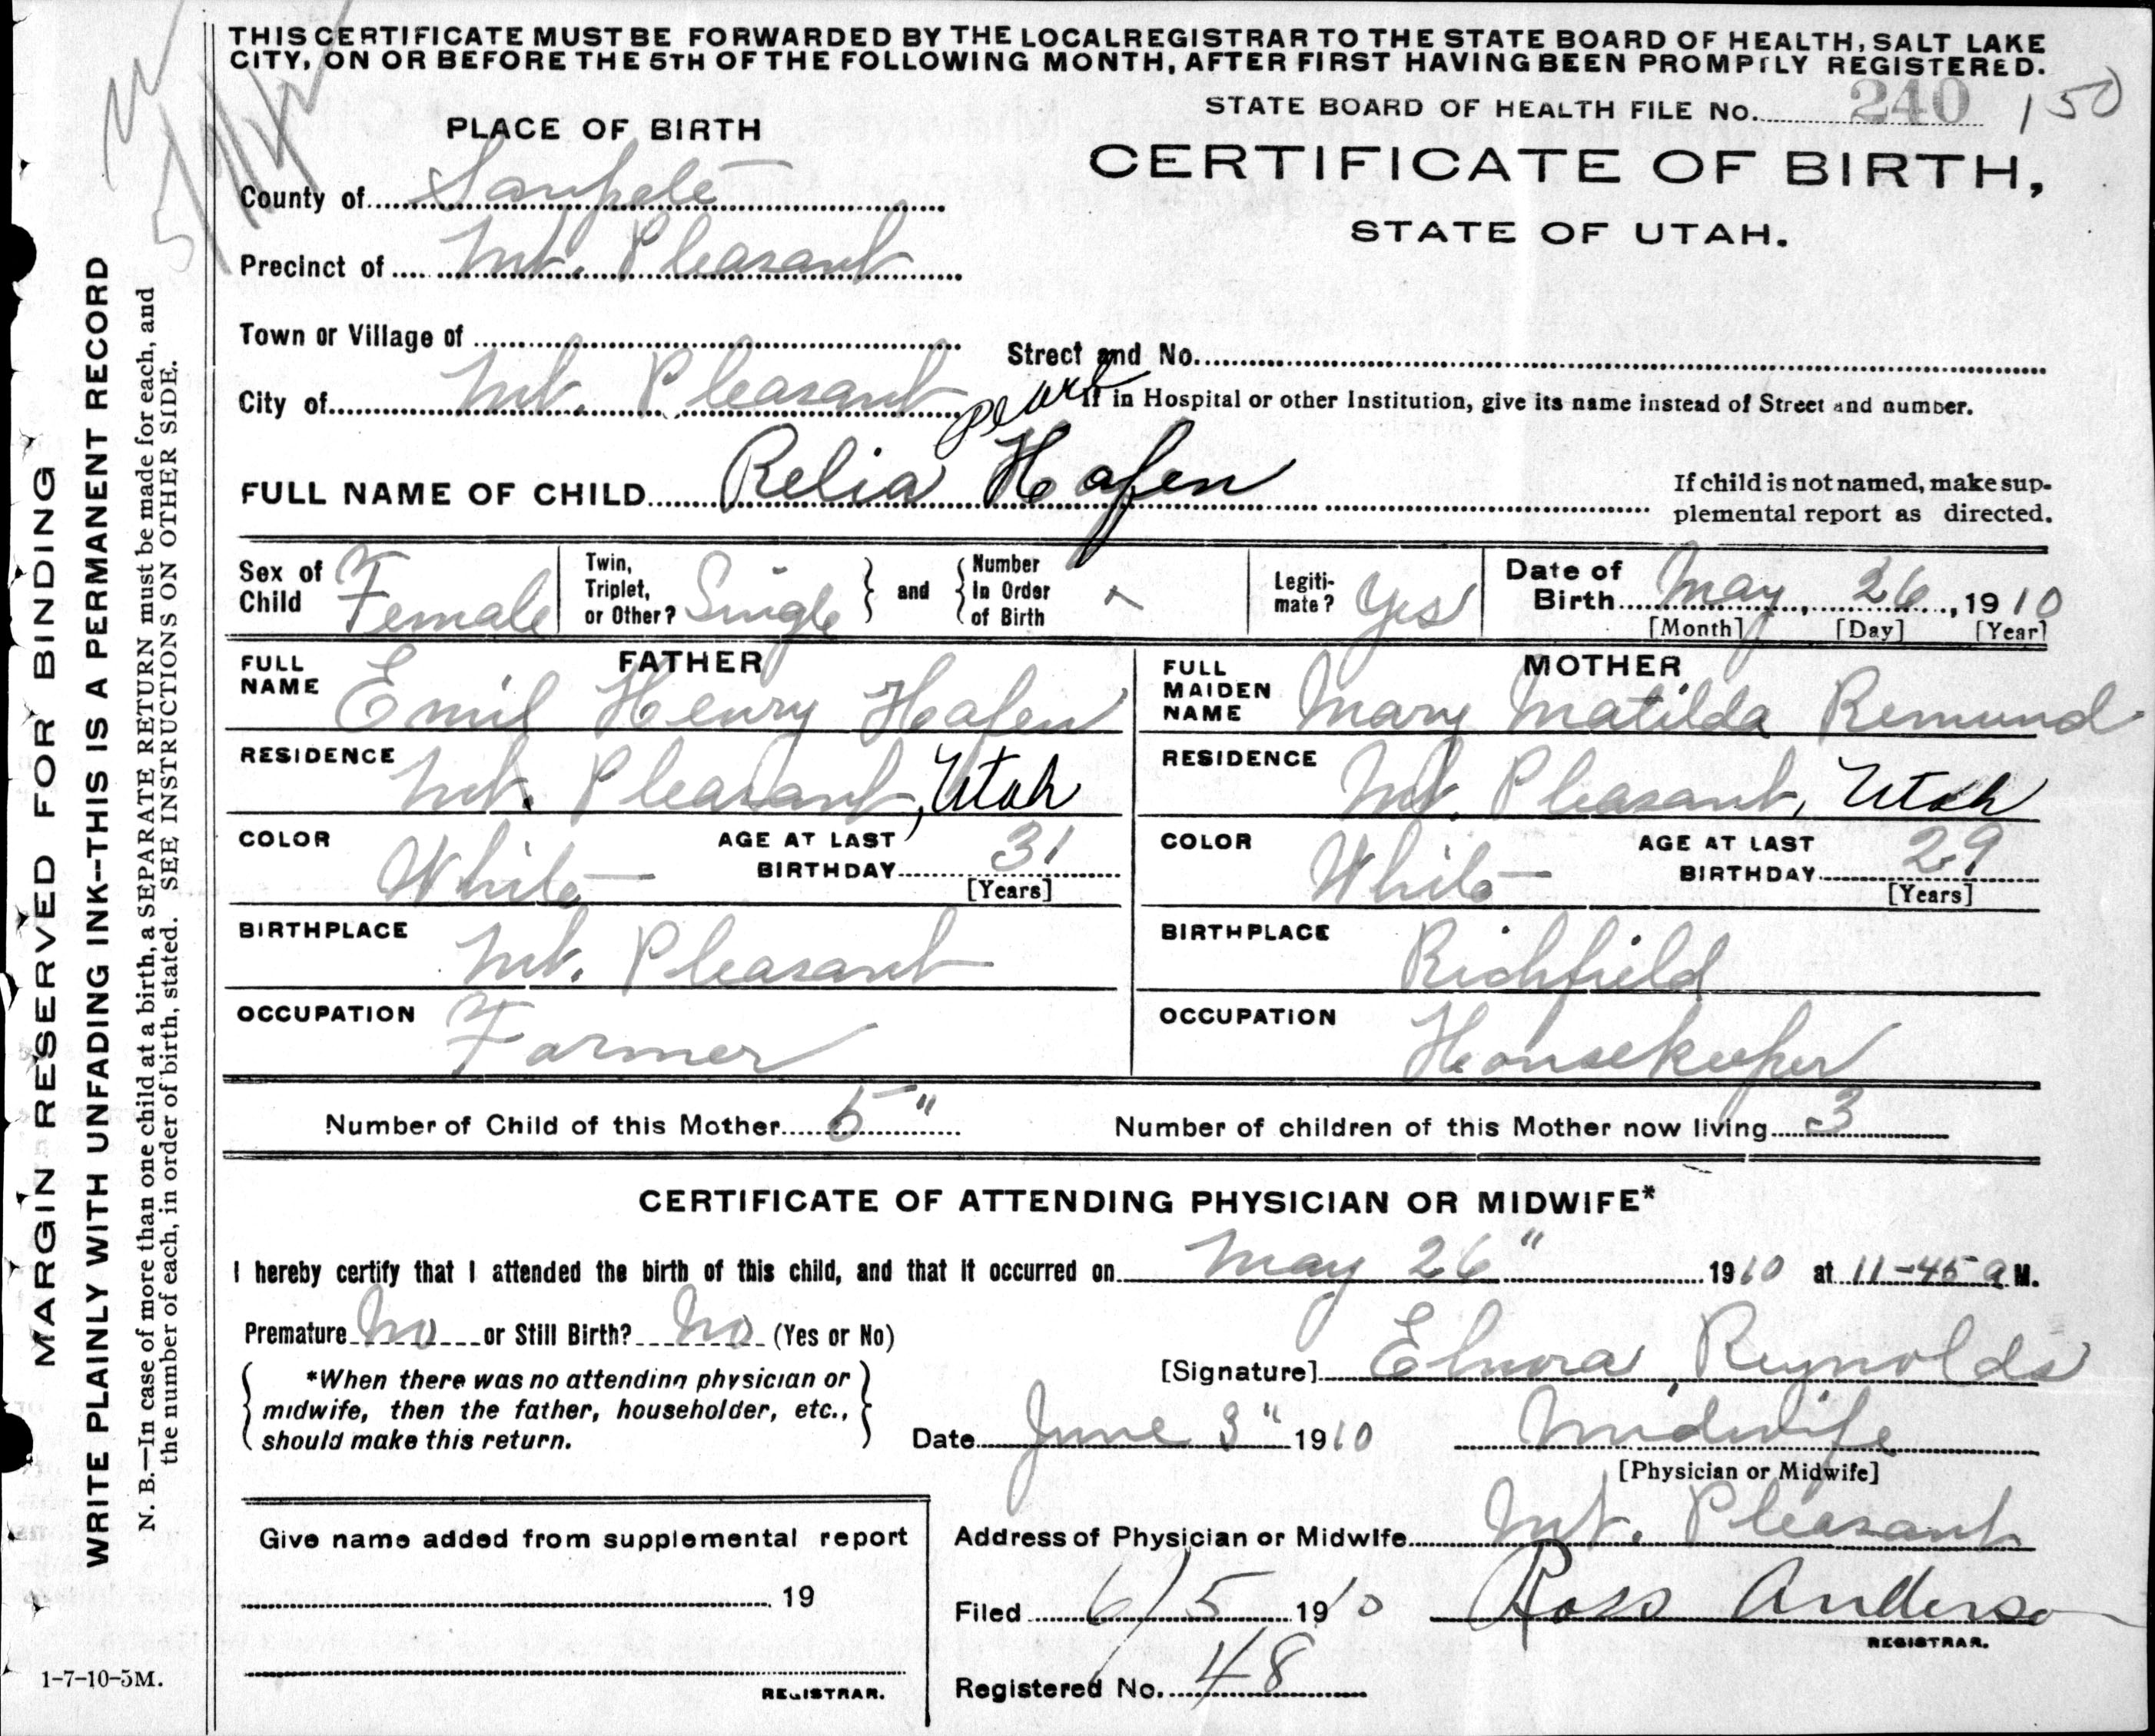 THIS CERTIFICATE MUST BE FORWARDED BY THE LOCAL REGISTRAR TO THE STATE BOARD OF HEALTH, SALT LAKE
CITY, ON OR BEFORE THE 5TH OF THE FOLLOWING MONTH, AFTER FIRST HAVING BEEN PROMPTLY REGISTERED.
STATE BOARD OF HEALTH FILE No. 240 150
PLACE OF BIRTH
CERTIFICATE OF BIRTH,
STATE OF UTAH.
County of Sanpete
Precinct of Mt. Pleasant
Town or Village of
Street and No.
City of Mt. Pleasant
If in Hospital or other Institution, give its name instead of Street and number.
pearl
FULL NAME OF CHILD Relia Hafen
If child is not named, make sup-
plemental report as directed.
Sex of Child Female
Twin, Triplet, or Other? Single
and Number In Order of Birth
Legiti-mate? Yes
Date of Birth May, 26, 1910
[Month] [Day] [Year]
FATHER
FULL NAME Emil Henry Hafen
RESIDENCE Mt. Pleasant, Utah
COLOR White
AGE AT LAST BIRTHDAY 31
[Years]
BIRTHPLACE Mt. Pleasant
OCCUPATION Farmer
MOTHER
FULL MAIDEN NAME Mary Matilda Remund
RESIDENCE Mt. Pleasant, Utah
COLOR White
AGE AT LAST BIRTHDAY 29
[Years]
BIRTHPLACE Richfield
OCCUPATION Housekeeper
Number of Child of this Mother 5"
Number of children of this Mother now living 3
CERTIFICATE OF ATTENDING PHYSICIAN OR MIDWIFE*
I hereby certify that I attended the birth of this child, and that it occurred on May 26" 1910 at 11-45 a M.
Premature No or Still Birth? No (Yes or No)
*When there was no attending physician or
midwife, then the father, householder, etc.,
should make this return.
[Signature] Elnora Reynolds
Date June 3" 1910
Midwife
[Physician or Midwife]
Give name added from supplemental report
19
REGISTRAR.
Address of Physician or Midwife Mt. Pleasant
Filed 6/5 1910 Ross Anderson
REGISTRAR.
Registered No. 48
MARGIN RESERVED FOR BINDING
WRITE PLAINLY WITH UNFADING INK--THIS IS A PERMANENT RECORD
N. B.—In case of more than one child at a birth, a SEPARATE RETURN must be made for each, and
the number of each, in order of birth, stated. SEE INSTRUCTIONS ON OTHER SIDE.
1-7-10-5M.